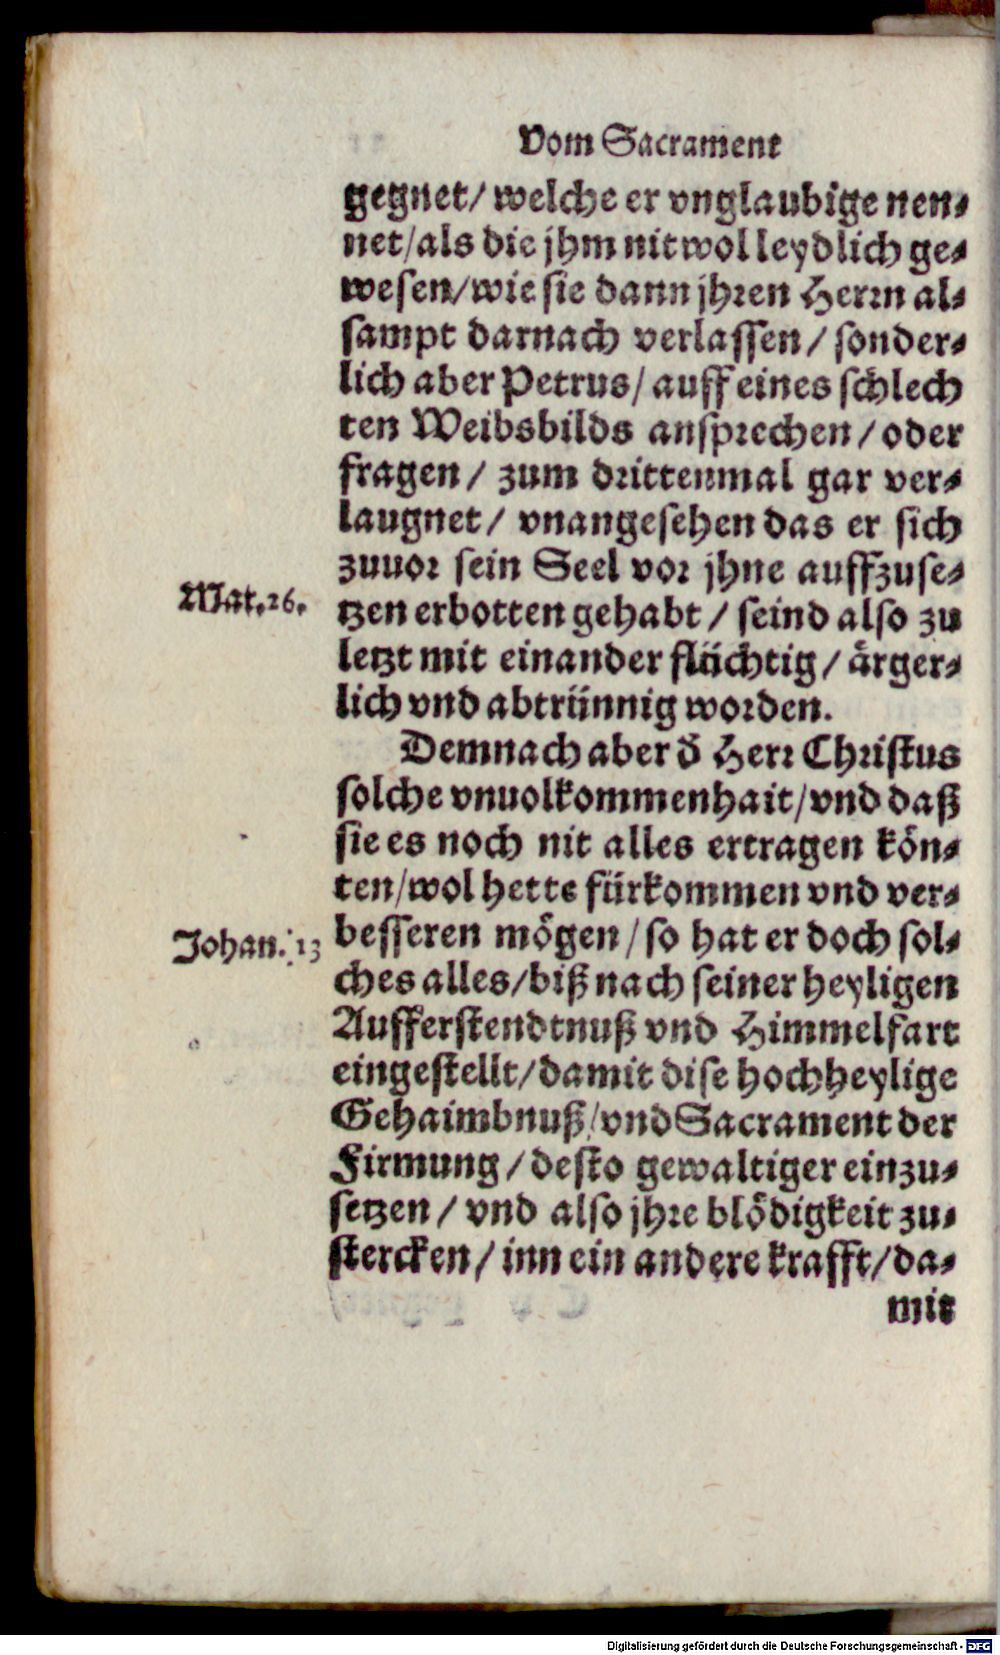 Vom Sacrament
gegnet/ welche er vnglaubige nen-
net/als die jhm nit wol leydlich ge-
wesen/wie sie dann jhren Herrn al-
sampt darnach verlassen/ sonder-
lich aber Petrus/ auff eines schlech
ten Weibsbilds ansprechen/ oder
fragen/ zum drittenmal gar ver-
laugnet/ vnangesehen das er sich
zuuor sein Seel vor jhne auffzuse-
Mat. 26.
tzen erbotten gehabt/ seind also zu
letzt mit einander flüchtig/ ärger-
lich vnd abtrünnig worden.
Demnach aber d̄ Herr Christus
solche vnuolkommenhait/vnd daß
sie es noch nit alles ertragen kön-
ten/wol hette fürkommen vnd ver-
Johan. 13
besseren mögen/so hat er doch sol-
ches alles/biß nach seiner heyligen
Aufferstendtnuß vnd Himmelfart
eingestellt/damit dise hochheylige
Gehaimbnuß/vnd Sacrament der
Firmung/desto gewaltiger einzu-
setzen/ vnd also jhre blödigkeit zu-
stercken/ inn ein andere krafft/da-
mit
Digitalisierung gefördert durch die Deutsche Forschungsgemeinschaft - DFG